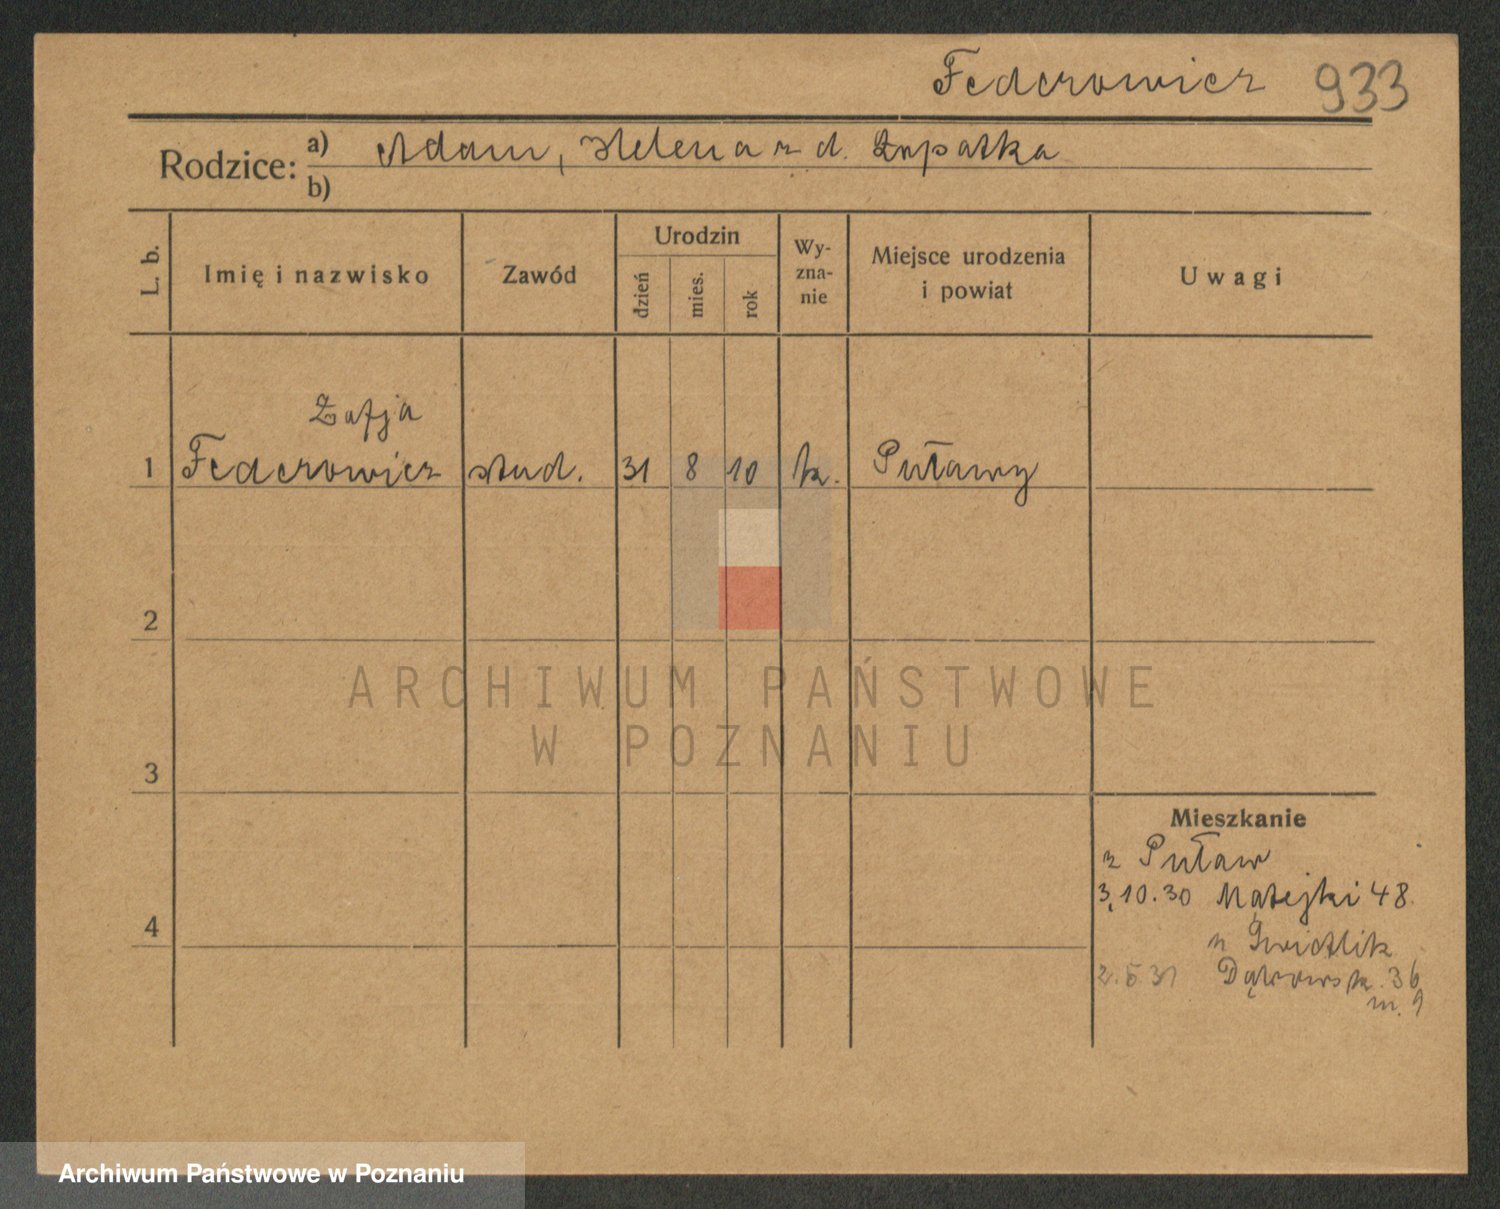 Federowicz 933
Rodzice: a) Adam, Helena z d.
b)
L. b. Imię i nazwisko Zawód Urodzin dzień mies. rok Wy-zna-nie Miejsce urodzenia i powiat Uwagi
Zofja
1 Federowicz stud. 31 8 10 k. Puławy
2
ARCHIWUM PAŃSTWOWE
W POZNANIU
3
Mieszkanie
z Puław
3.10.30 Matejki 48
4
u
2.5.31 Dąbrowsk. 36
m. 9
Archiwum Państwowe w Poznaniu